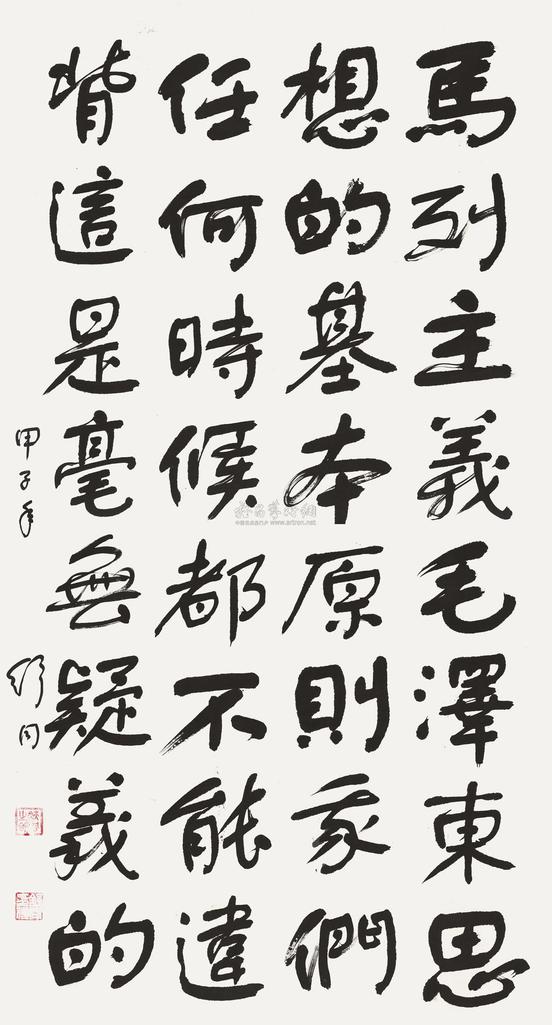 馬列主義毛澤東思
想的基本原則我們
任何時候都不能違
背這是毫無疑義的
甲子年
舒同
www.artron.net